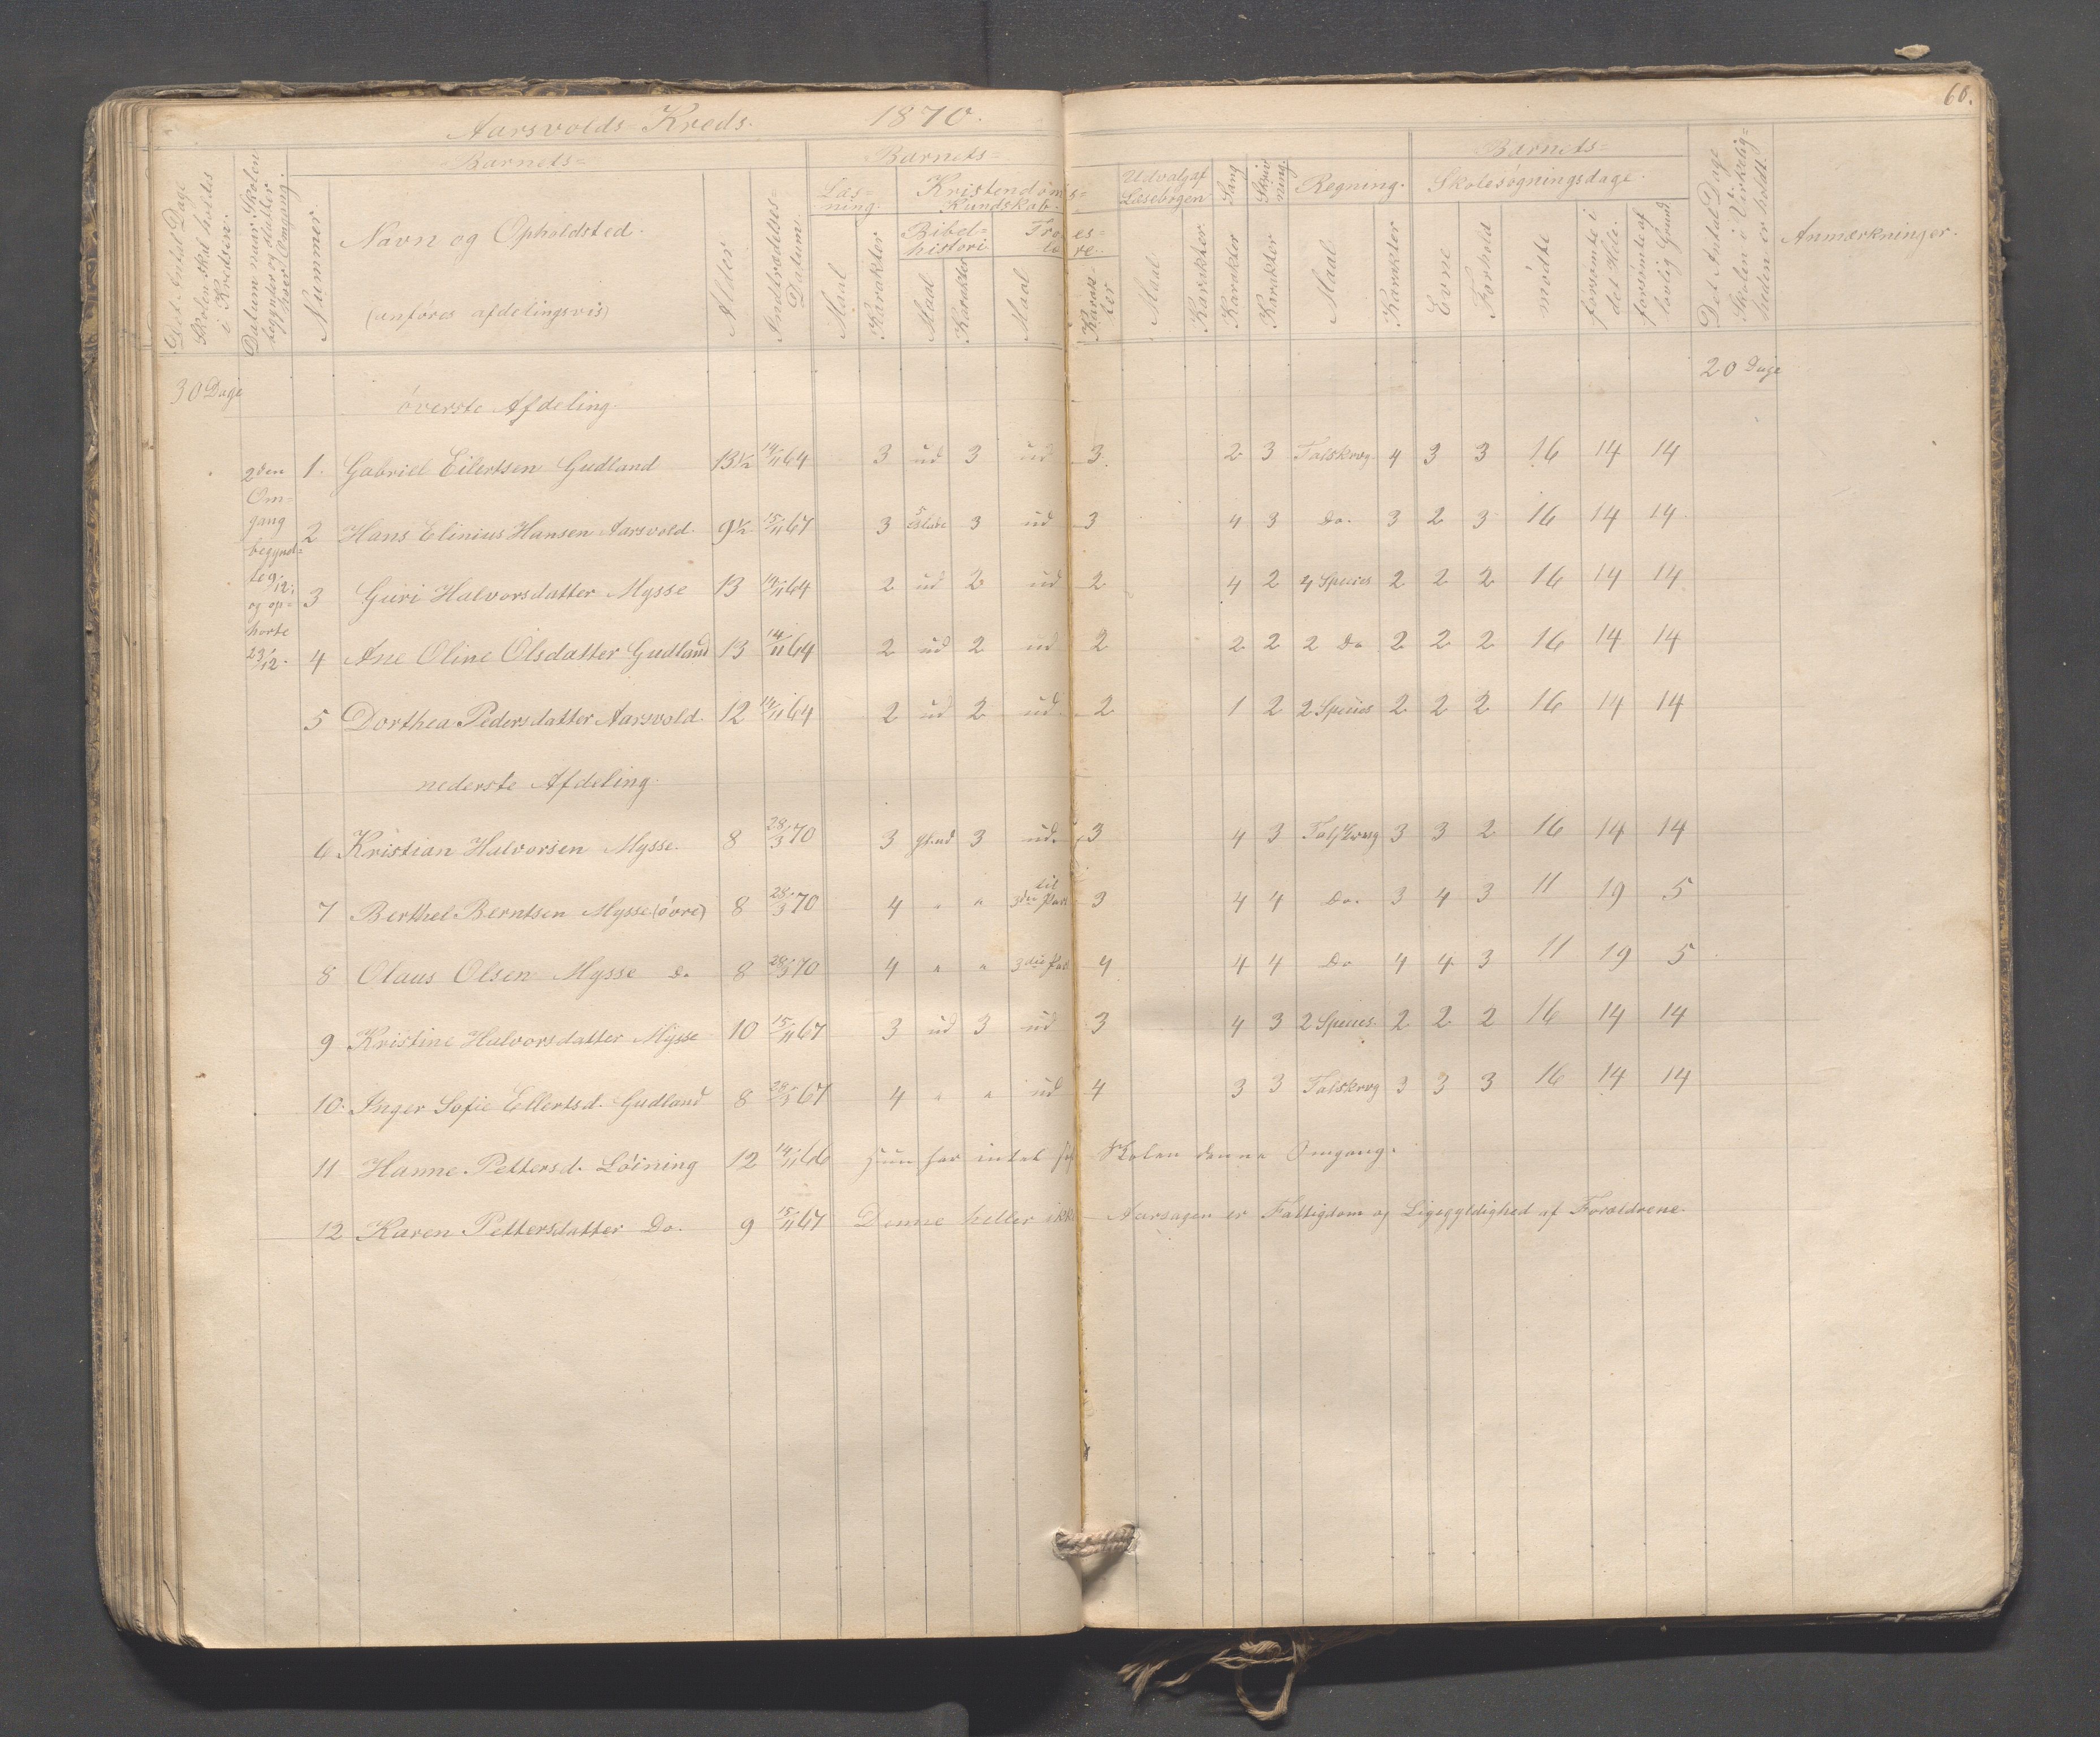 60.
Aarsvolds-Kreds. 1870.
Barnets= Barnets= Barnets=
Det Antal Dage Skolen skal holdes i Kredsen.
Datum naar Skolen begynder og slutter hver Omgang.
Nummer.
Navn og Opholdsted.
(anføres afdelingsvis)
Alder
Indtrædelses= Datum.
Læs= ning.
Maal
Karakter
Kristendoms= Kundskab.
Bibel= histori
Maal
Karakter
Troes= lære.
Maal
Karak ter
Udvalg af Læsebogen
Maal
Karakter
Sang
Karakter
Skriv ning.
Karakter
Regning.
Maal
Karakter
Evne
Forhold
Skolesøgningsdage.
mødte
forsømte i det Hele.
forsømte af lovlig Grund
Det Antal Dage Skolen i Virkelig= heden er holdt.
Anmærkninger.
30 Dage 20 Dage
øverste Afdeling.
2den Om= gang begynd= te 9/12. og op= hørte 23/12.
1. Gabriel Eilertsen Gudland 13½ 14/11 64 3 ud 3 ud 3. 2 3 Talskrvg 4 3 3 16 14 14
2 Hans Elinius Hansen Aarsvold. 9½ 15/11 67 3 5 3 ud 3 4 3 Do. 3 2 3 16 14 14.
3 Guri Halvorsdatter Mysse 13 14/11 64 2 ud 2 ud 2 4 2 4 Species 2 2 2 16 14 14
4 Ane Oline Olsdatter Gudland 13 14/11 64 2 ud 2 ud 2 2 2 2 Do 2 2 2 16 14 14
5 Dorthea Pedersdatter Aarsvold. 12 14/11 64 2 ud 2 ud. 2 1 2 2 Species 2 2 2 16 14 14
nederste Afdeling.
6 Kristian Halvorsen Mysse. 8 28/3 70 3 3 ud. 3 4 3 Talskrvg 3 3 2 16 14 14
7 Berthel Berntsen Mysse (øvre) 8 28/3 70 4 " " til 3die Part 3 4 4 Do. 3 4 3 11 19 5
8 Olaus Olsen Mysse Do 8 28/3 70 4 " " 3die Part 4 4 4 Do 4 4 3 11 19 5
9 Kristine Halvorsdatter Mysse 10 15/11 67 3 ud 3 ud 3 4 3 2 Species. 2 2 2 16 14 14
10. Inger Sofie Ellertsd. Gudland 8 28/3 67 4 " " ud 4 3 3 Talskrvg 3 3 3 16 14 14
11 Hanne Pettersd. Löining 12 14/11 66 Hun har intet Skolen denne Omgang.
12 Karen Pettersdatter Do. 9 15/11 67 Denne heller ikke Aarsagen er Fattigdom og Ligegyldighed af Forældrene.